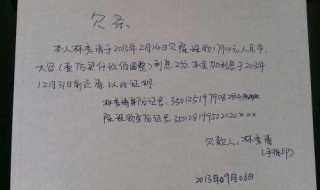 欠条
本人林秀清于2013年2月14日欠陈琼钦17900元人民币
大写（壹万柒仟玖佰圆整）利息2分，本金加利息于2013年
12月31日前还清，以此证明
林秀清身份证号：35012519790828
陈琼钦身份证号：350128199502020×××
欠款人：林秀清
（手指印）
2013年09月06日